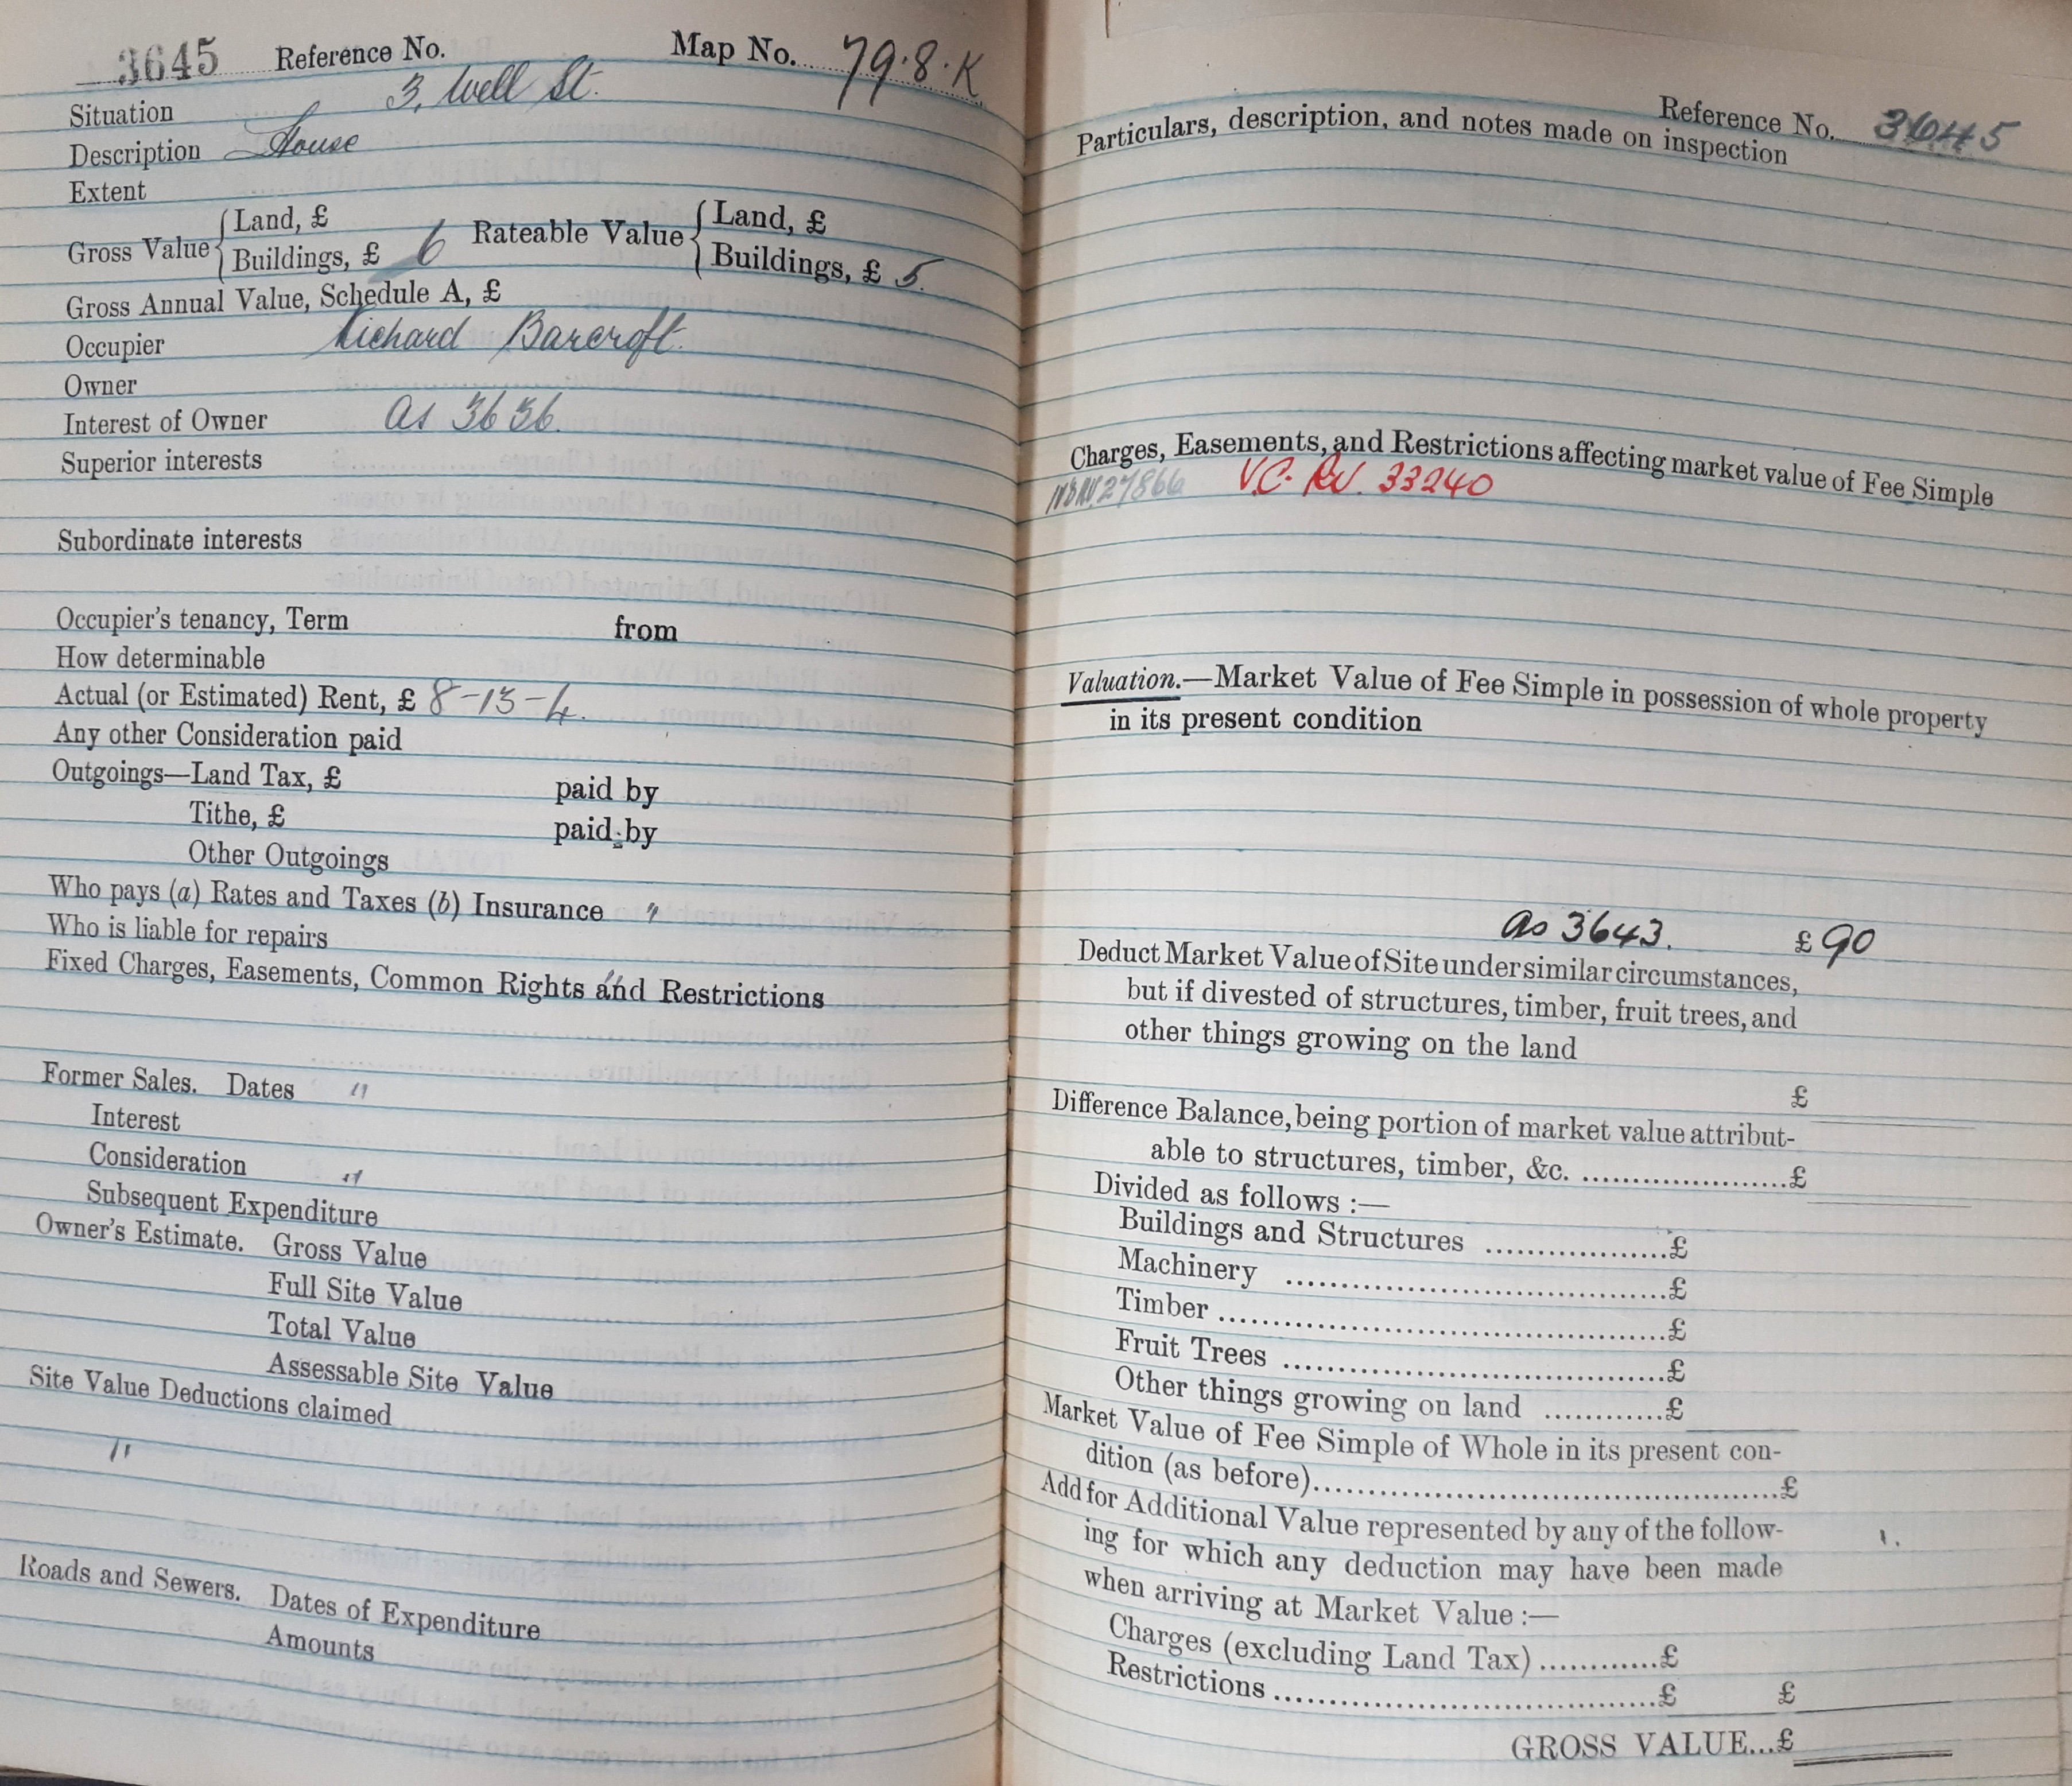 3645 Reference No. Map No. 79.8.K
Situation 3, Well St.
Description House
Extent
Gross Value { Land, £
Buildings, £ 6 Rateable Value { Land, £
Buildings, £ 5.
Gross Annual Value, Schedule A, £
Occupier Richard Barcroft.
Owner
Interest of Owner as 3636.
Superior interests
Subordinate interests
Occupier's tenancy, Term from
How determinable
Actual (or Estimated) Rent, £ 8-13-4.
Any other Consideration paid
Outgoings—Land Tax, £ paid by
Tithe, £ paid by
Other Outgoings
Who pays (a) Rates and Taxes (b) Insurance "
Who is liable for repairs
Fixed Charges, Easements, Common Rights and Restrictions
"
Former Sales. Dates "
Interest
Consideration "
Subsequent Expenditure
Owner's Estimate. Gross Value
Full Site Value
Total Value
Assessable Site Value
Site Value Deductions claimed
"
Roads and Sewers. Dates of Expenditure
Amounts
Reference No. 3645
Particulars, description, and notes made on inspection
Charges, Easements, and Restrictions affecting market value of Fee Simple
27866 V.C. RV. 33240
Valuation.—Market Value of Fee Simple in possession of whole property
in its present condition
as 3643. £90
Deduct Market Value of Site under similar circumstances,
but if divested of structures, timber, fruit trees, and
other things growing on the land
£
Difference Balance, being portion of market value attribut-
able to structures, timber, &c. .....................£
Divided as follows :—
Buildings and Structures ..................£
Machinery ......................................£
Timber .............................................£
Fruit Trees ......................................£
Other things growing on land ............£
Market Value of Fee Simple of Whole in its present con-
dition (as before)..............................................£
Add for Additional Value represented by any of the follow-
ing for which any deduction may have been made
when arriving at Market Value :—
Charges (excluding Land Tax) ............£
Restrictions ......................................£ £
GROSS VALUE...£